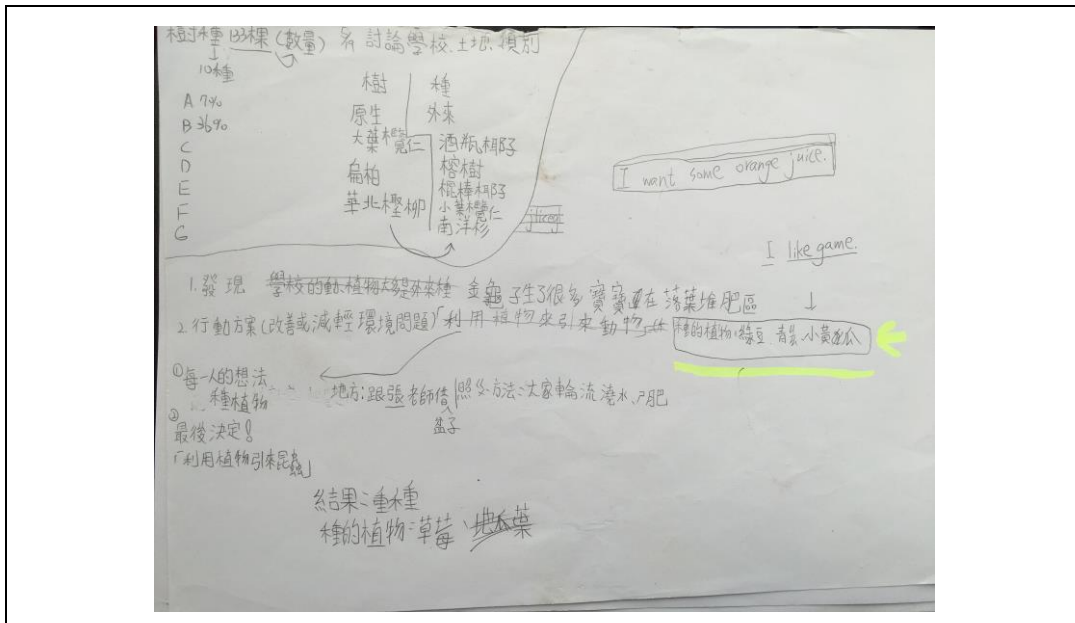 樹種 133棵(數量) 討論學校、土地、類別
↓
10種
樹 | 種
原生 外來
A 7%
B 36%
C
D
E
F
G
大葉欖仁
扁柏
華北檉柳
酒瓶椰子
榕樹
棍棒椰子
小葉欖仁
南洋杉
I want some orange juice.
I like game.
1.發現 學校的動、植物大多是外來種 金龜子生了很多寶寶 在落葉堆肥區
2.行動方案(改善或減輕環境問題)「利用植物來引來動物
種的植物:綠豆、青菜、小黃瓜
①每一人的想法
種植物
地方:跟張老師借
盆子
照 方法:大家輪流澆水、肥
②
最後決定!
「利用植物引來昆蟲」
結果:重種
種的植物:草莓、地瓜葉